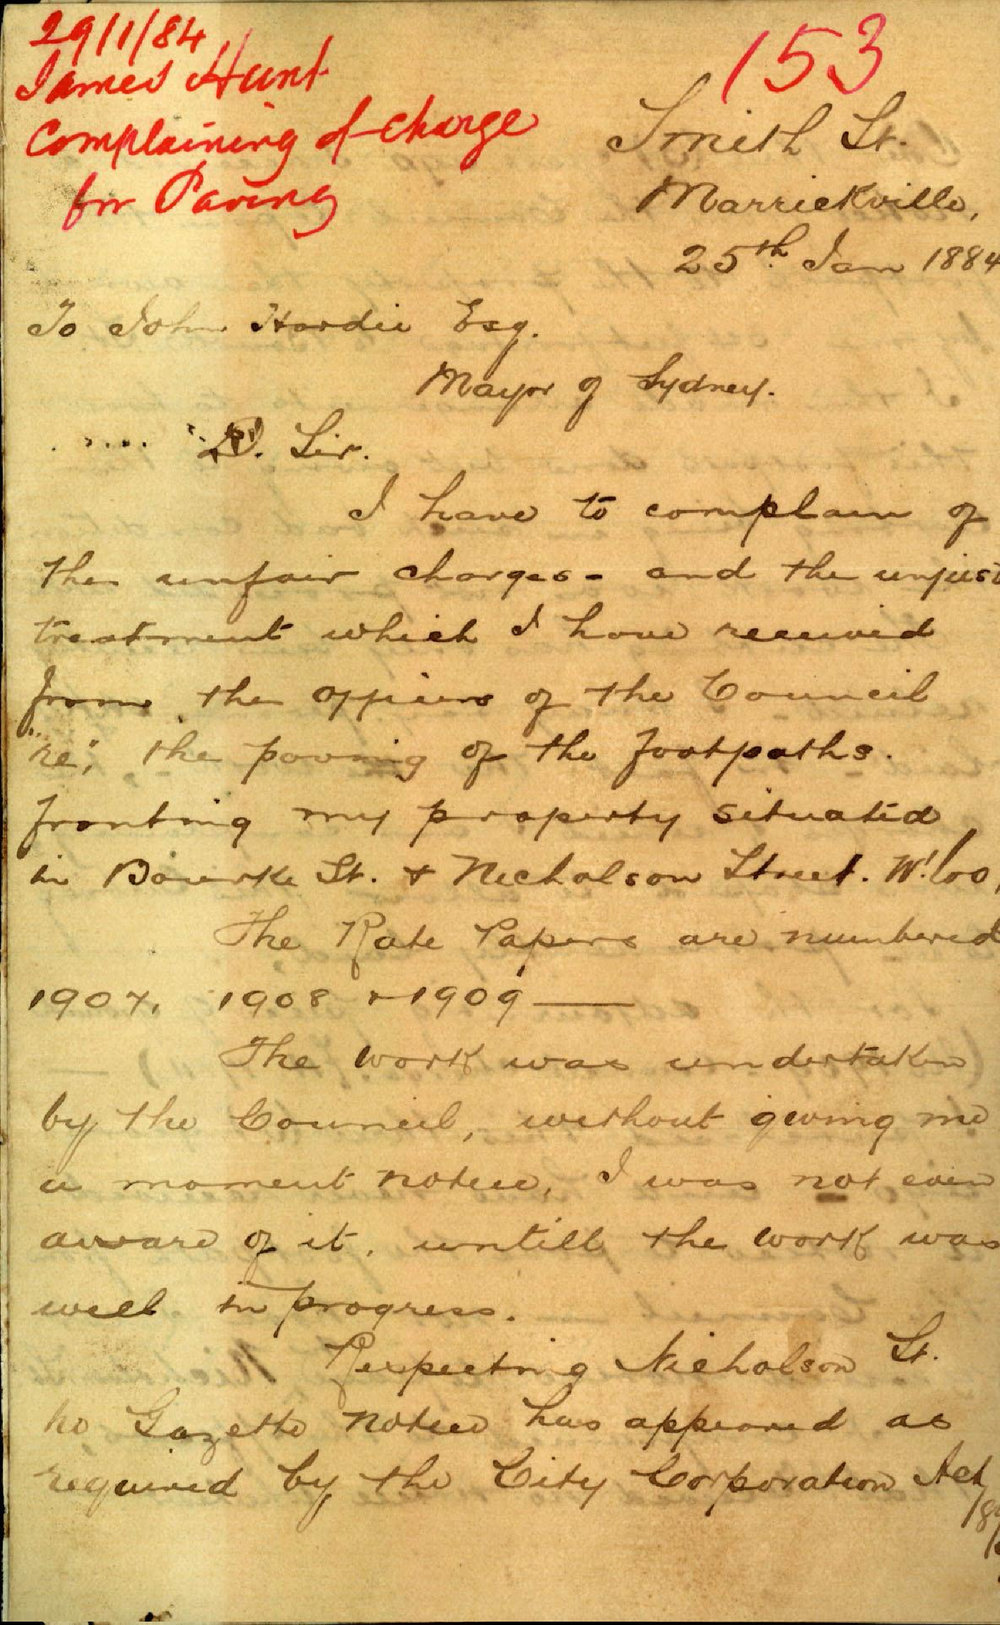 29/1/84
James Hunt
Complaining of charge
for Paving
153
Smith St.
Marrickville,
25th Jan 1884
To John Hardie Esq.
Mayor of Sydney.
D. Sir.
I have to complain of
the unfair charges - and the unjust
treatment which I have received
from the officers of the Council
"re", the paving of the footpaths.
fronting my property situated
in Bourke St. & Nicholson Street. W'loo,
The Rate Papers are numbered
1907, 1908 & 1909 —
The work was undertaken
by the Council, without giving me
a moment notice, I was not even
aware of it, untill the work was
well in progress.
Respecting Nicholson St.
no Gazette notice has appeared as
required by the City Corporation Act